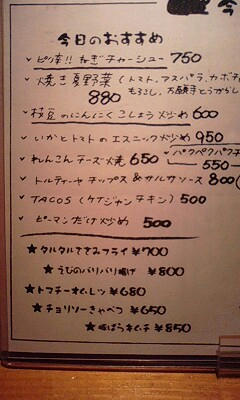 今日のおすすめ
✓ ピリ辛!! ねぎチャーシュー 750
✓ 焼き夏野菜 (トマト、アスパラ、カボチャ
もろこし、万願寺とうがらし
880
✓ 枝豆のにんにくこしょう炒め 600
✓ いかとトマトのエスニック炒め 950
✓ れんこんチーズ焼 650
✓ パクパクパクチ
550
✓ トルティーヤチップス&サルサソース 800
✓ TACOS (ケイジャンチキン) 500
✓ ピーマンだけ炒め 500
★ タルタルささみフライ ¥700
★ えびのパリパリ揚げ ¥800
★ トマチーオムレツ ¥680
★ チョリソーきゃべつ ¥650
★ 豚ばらキムチ ¥850